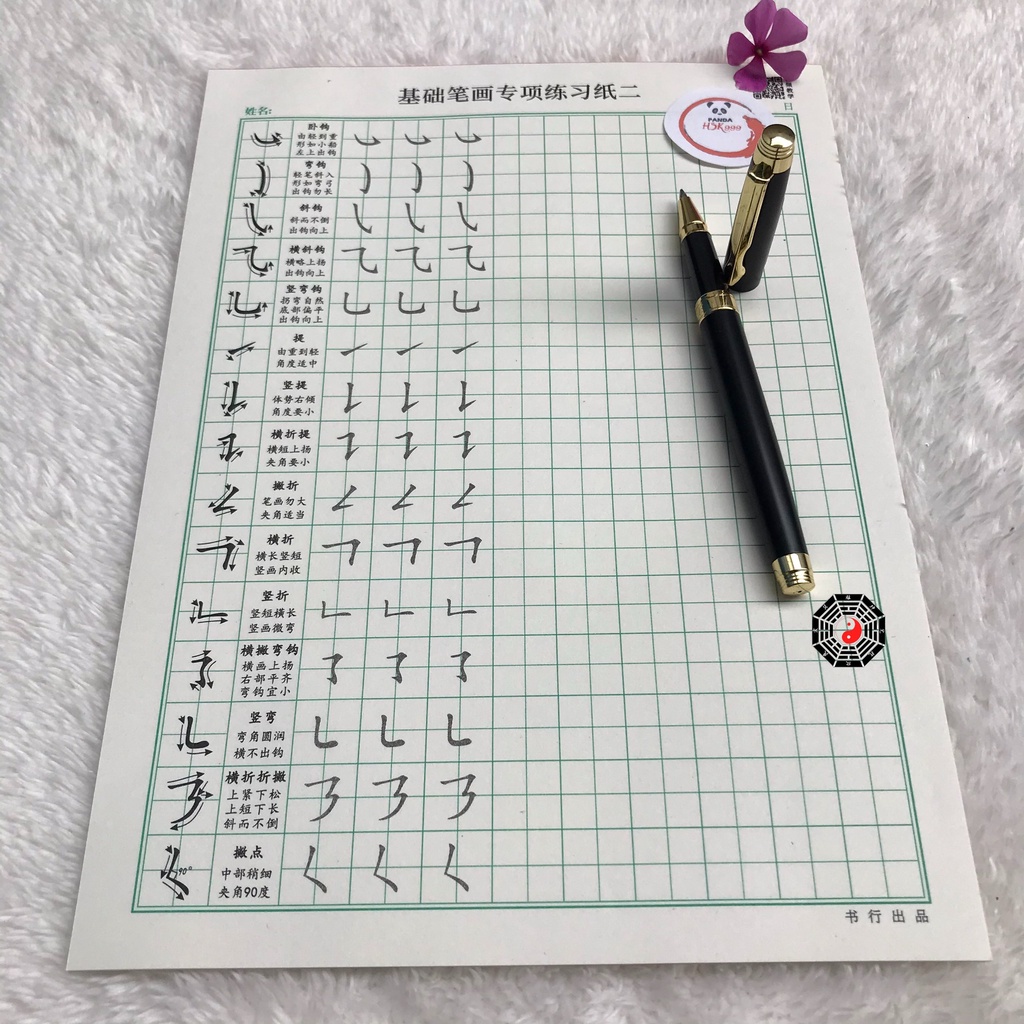 基础笔画专项练习纸二
姓名:
日
PANDA
HSK999
卧钩
由轻到重
形如小船
左上出钩
弯钩
轻笔斜入
形如弯弓
出钩勿长
斜钩
斜而不倒
出钩向上
横斜钩
横略上扬
出钩向上
竖弯钩
拐弯自然
底部偏平
出钩向上
提
由重到轻
角度适中
竖提
体势右倾
角度要小
横折提
横短上扬
夹角要小
撇折
笔画勿大
夹角适当
横折
横长竖短
竖画内收
竖折
竖短横长
竖画微弯
横撇弯钩
横画上扬
右部平齐
弯钩宜小
竖弯
弯角圆润
横不出钩
横折折撇
上紧下松
上短下长
斜而不倒
90°
撇点
中部稍细
夹角90度
书行出品